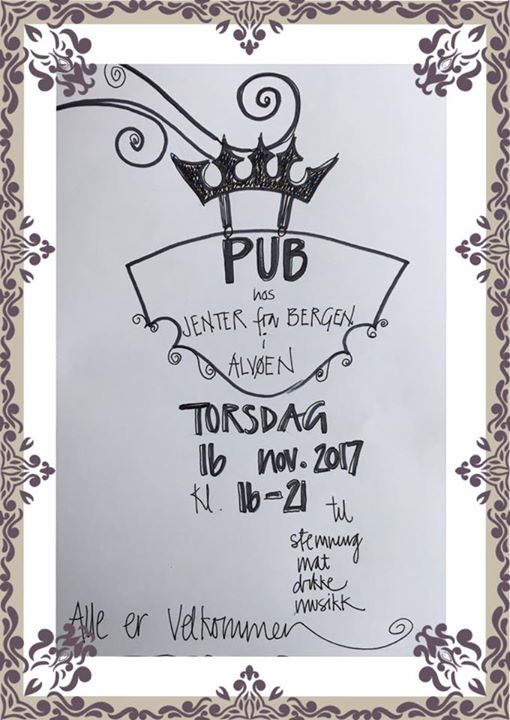 PUB
hos
JENTER fra BERGEN
i
ALVØEN
TORSDAG
16 nov. 2017
kl. 16-21
til
stemning
mat
drikke
musikk
Alle er Velkommen